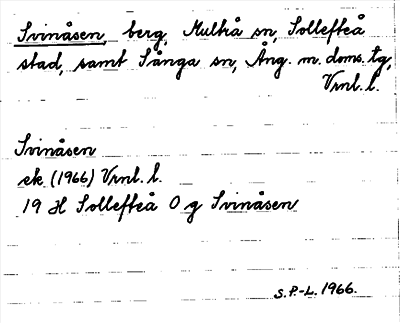 Svinåsen, berg, Multrå sn, Sollefteå
stad, samt Sånga sn, Ång. m. doms. tg,
Vrnl. l.
Svinåsen
ek (1966) Vrnl. l.
19 H Sollefteå O g Svinåsen
S.P.-L. 1966.